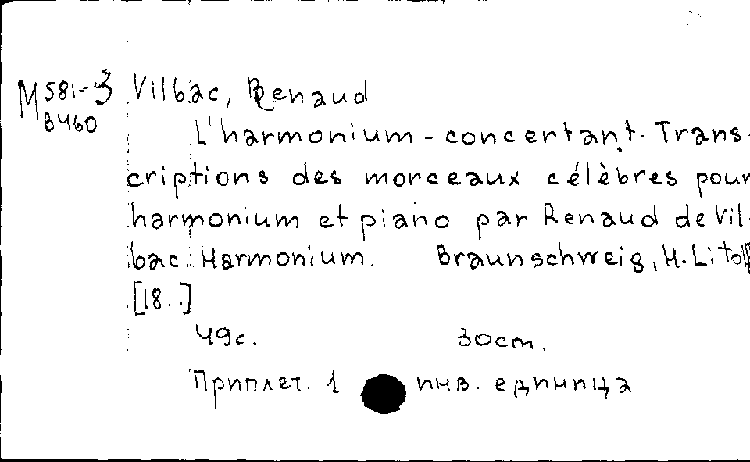 М581-3 Vilbac, Renaud
В460
L'harmonium-concertant. Trans-
criptions des morceaux célèbres pour
harmonium et piano par Renaud de Vil-
bac. Harmonium. Braunschweig, H. Litolff
[18..]
49с. 30cm.
Приплет. 1 инв. единица